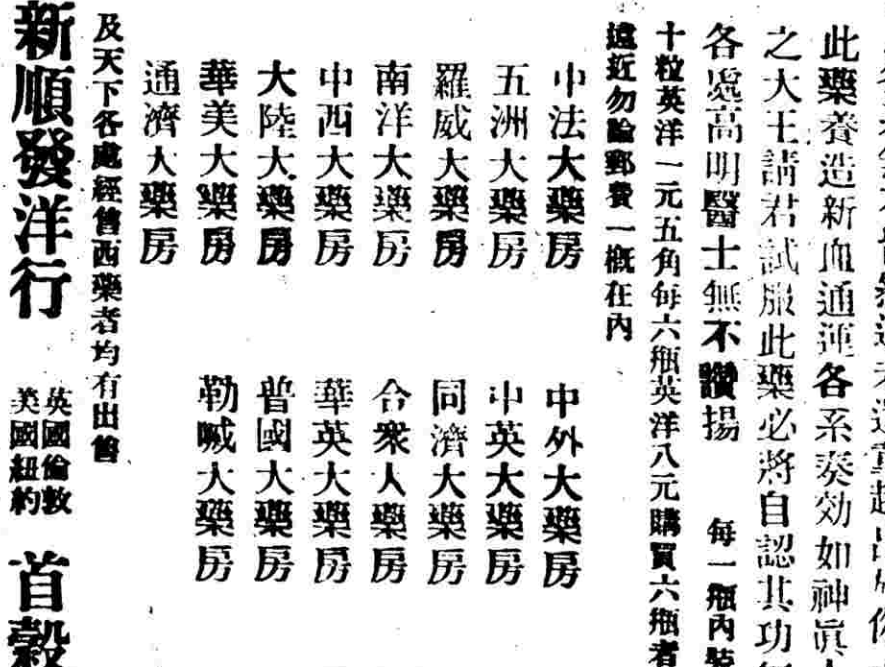 此藥養造新血通運各系奏効如神眞
之大王請君試服此藥必將自認其功
各處高明醫士無不讚揚 每一瓶內裝
十粒英洋一元五角每六瓶英洋八元購買六瓶者
遠近勿論郵費一概在內
中法大藥房 中外大藥房
五洲大藥房 中英大藥房
羅威大藥房 同濟大藥房
南洋大藥房 合衆大藥房
中西大藥房 華英大藥房
大陸大藥房 普國大藥房
華美大藥房 勒喊大藥房
通濟大藥房
及天下各處經售西藥者均有出售
新順發洋行 英國倫敦 美國紐約 首